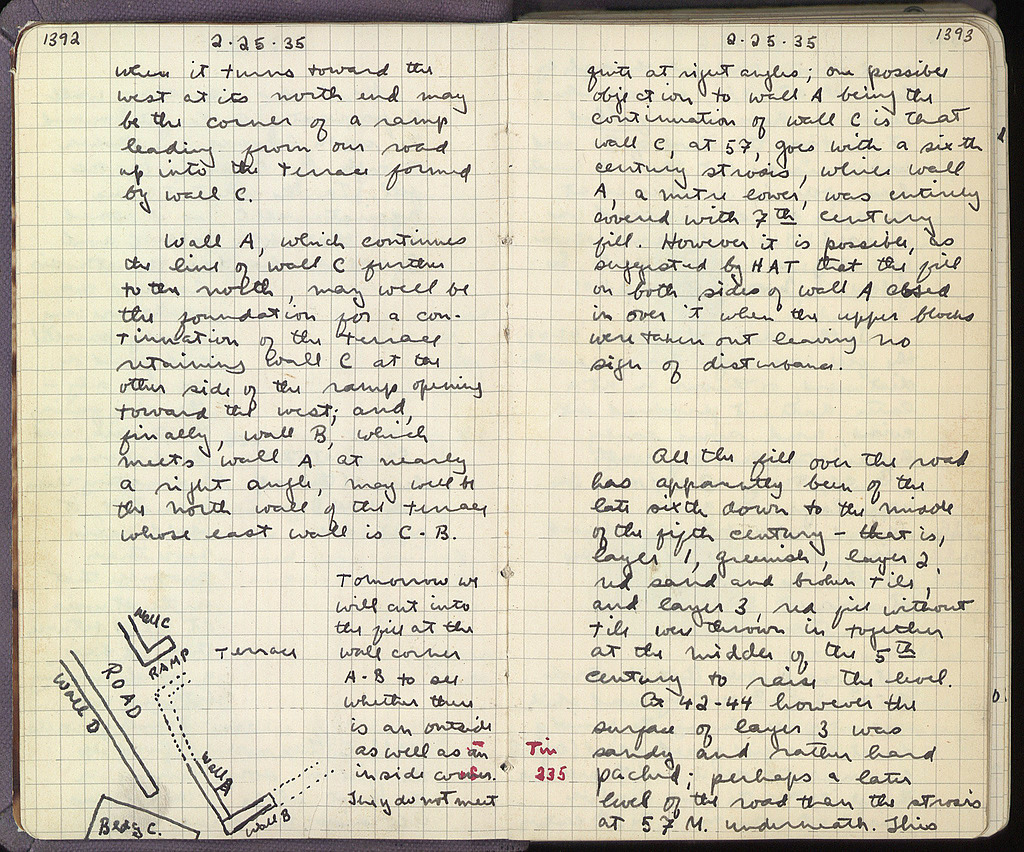 1392
2·25·35
when it turns toward the
west at its north end may
be the corner of a ramp
leading from our road
up into the terrace formed
by wall C.
Wall A, which continues
the line of wall C further
to the north, may well be
the foundation for a con-
tinuation of the terrace
retaining wall C at the
other side of the ramp opening
toward the west; and,
finally, wall B, which
meets wall A at nearly
a right angle, may well be
the north wall of the terrace
whose east wall is C-B.
Tomorrow we
will cut into
the fill at the
wall corner
A-B to see
whether there
is an outside
as well as an
inside corner.
They do not meet
Wall C
RAMP
Terrace
ROAD
Wall D
Wall A
Wall B
Bldg C.
2·25·35
1393
quite at right angles; one possible
objection to wall A being the
continuation of wall C is that
wall C, at 57, goes with a sixth
century strosis, while wall
A, a metre lower, was entirely
covered with 7th century
fill. However it is possible, as
suggested by HAT that the fill
on both sides of wall A closed
in over it when the upper blocks
were taken out leaving no
sign of disturbance.
All the fill over the road
has apparently been of the
late sixth down to the middle
of the fifth century - that is,
layer 1, greenish, layer 2,
red sand and broken tile,
and layer 3, red fill without
tile were thrown in together
at the middle of the 5th
century to raise the level.
At 42-44 however the
surface of layer 3 was
sandy and rather hard
packed; perhaps a later
level of the road than the strosis
at 57 M. underneath. This
Tin
235